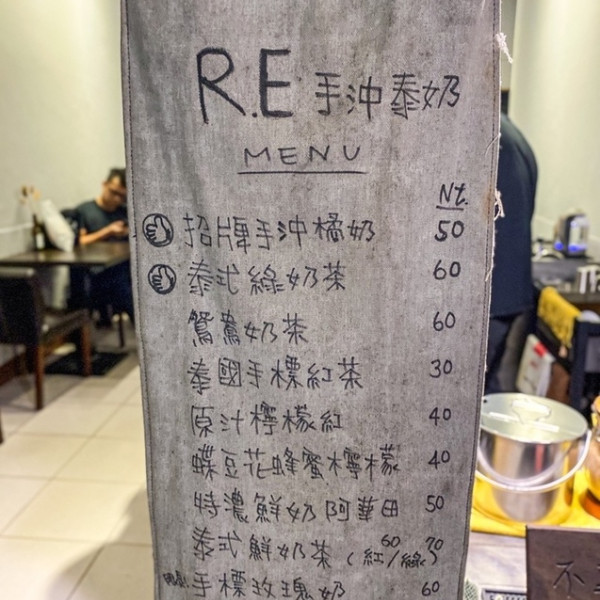 R.E 手沖泰奶
MENU
Nt.
招牌手沖橘奶 50
泰式綠奶茶 60
鴛鴦奶茶 60
泰國手標紅茶 30
原汁檸檬紅 40
蝶豆花蜂蜜檸檬 40
特濃鮮奶阿華田 50
泰式鮮奶茶 (60紅/70綠)
手標玫瑰奶 60
不